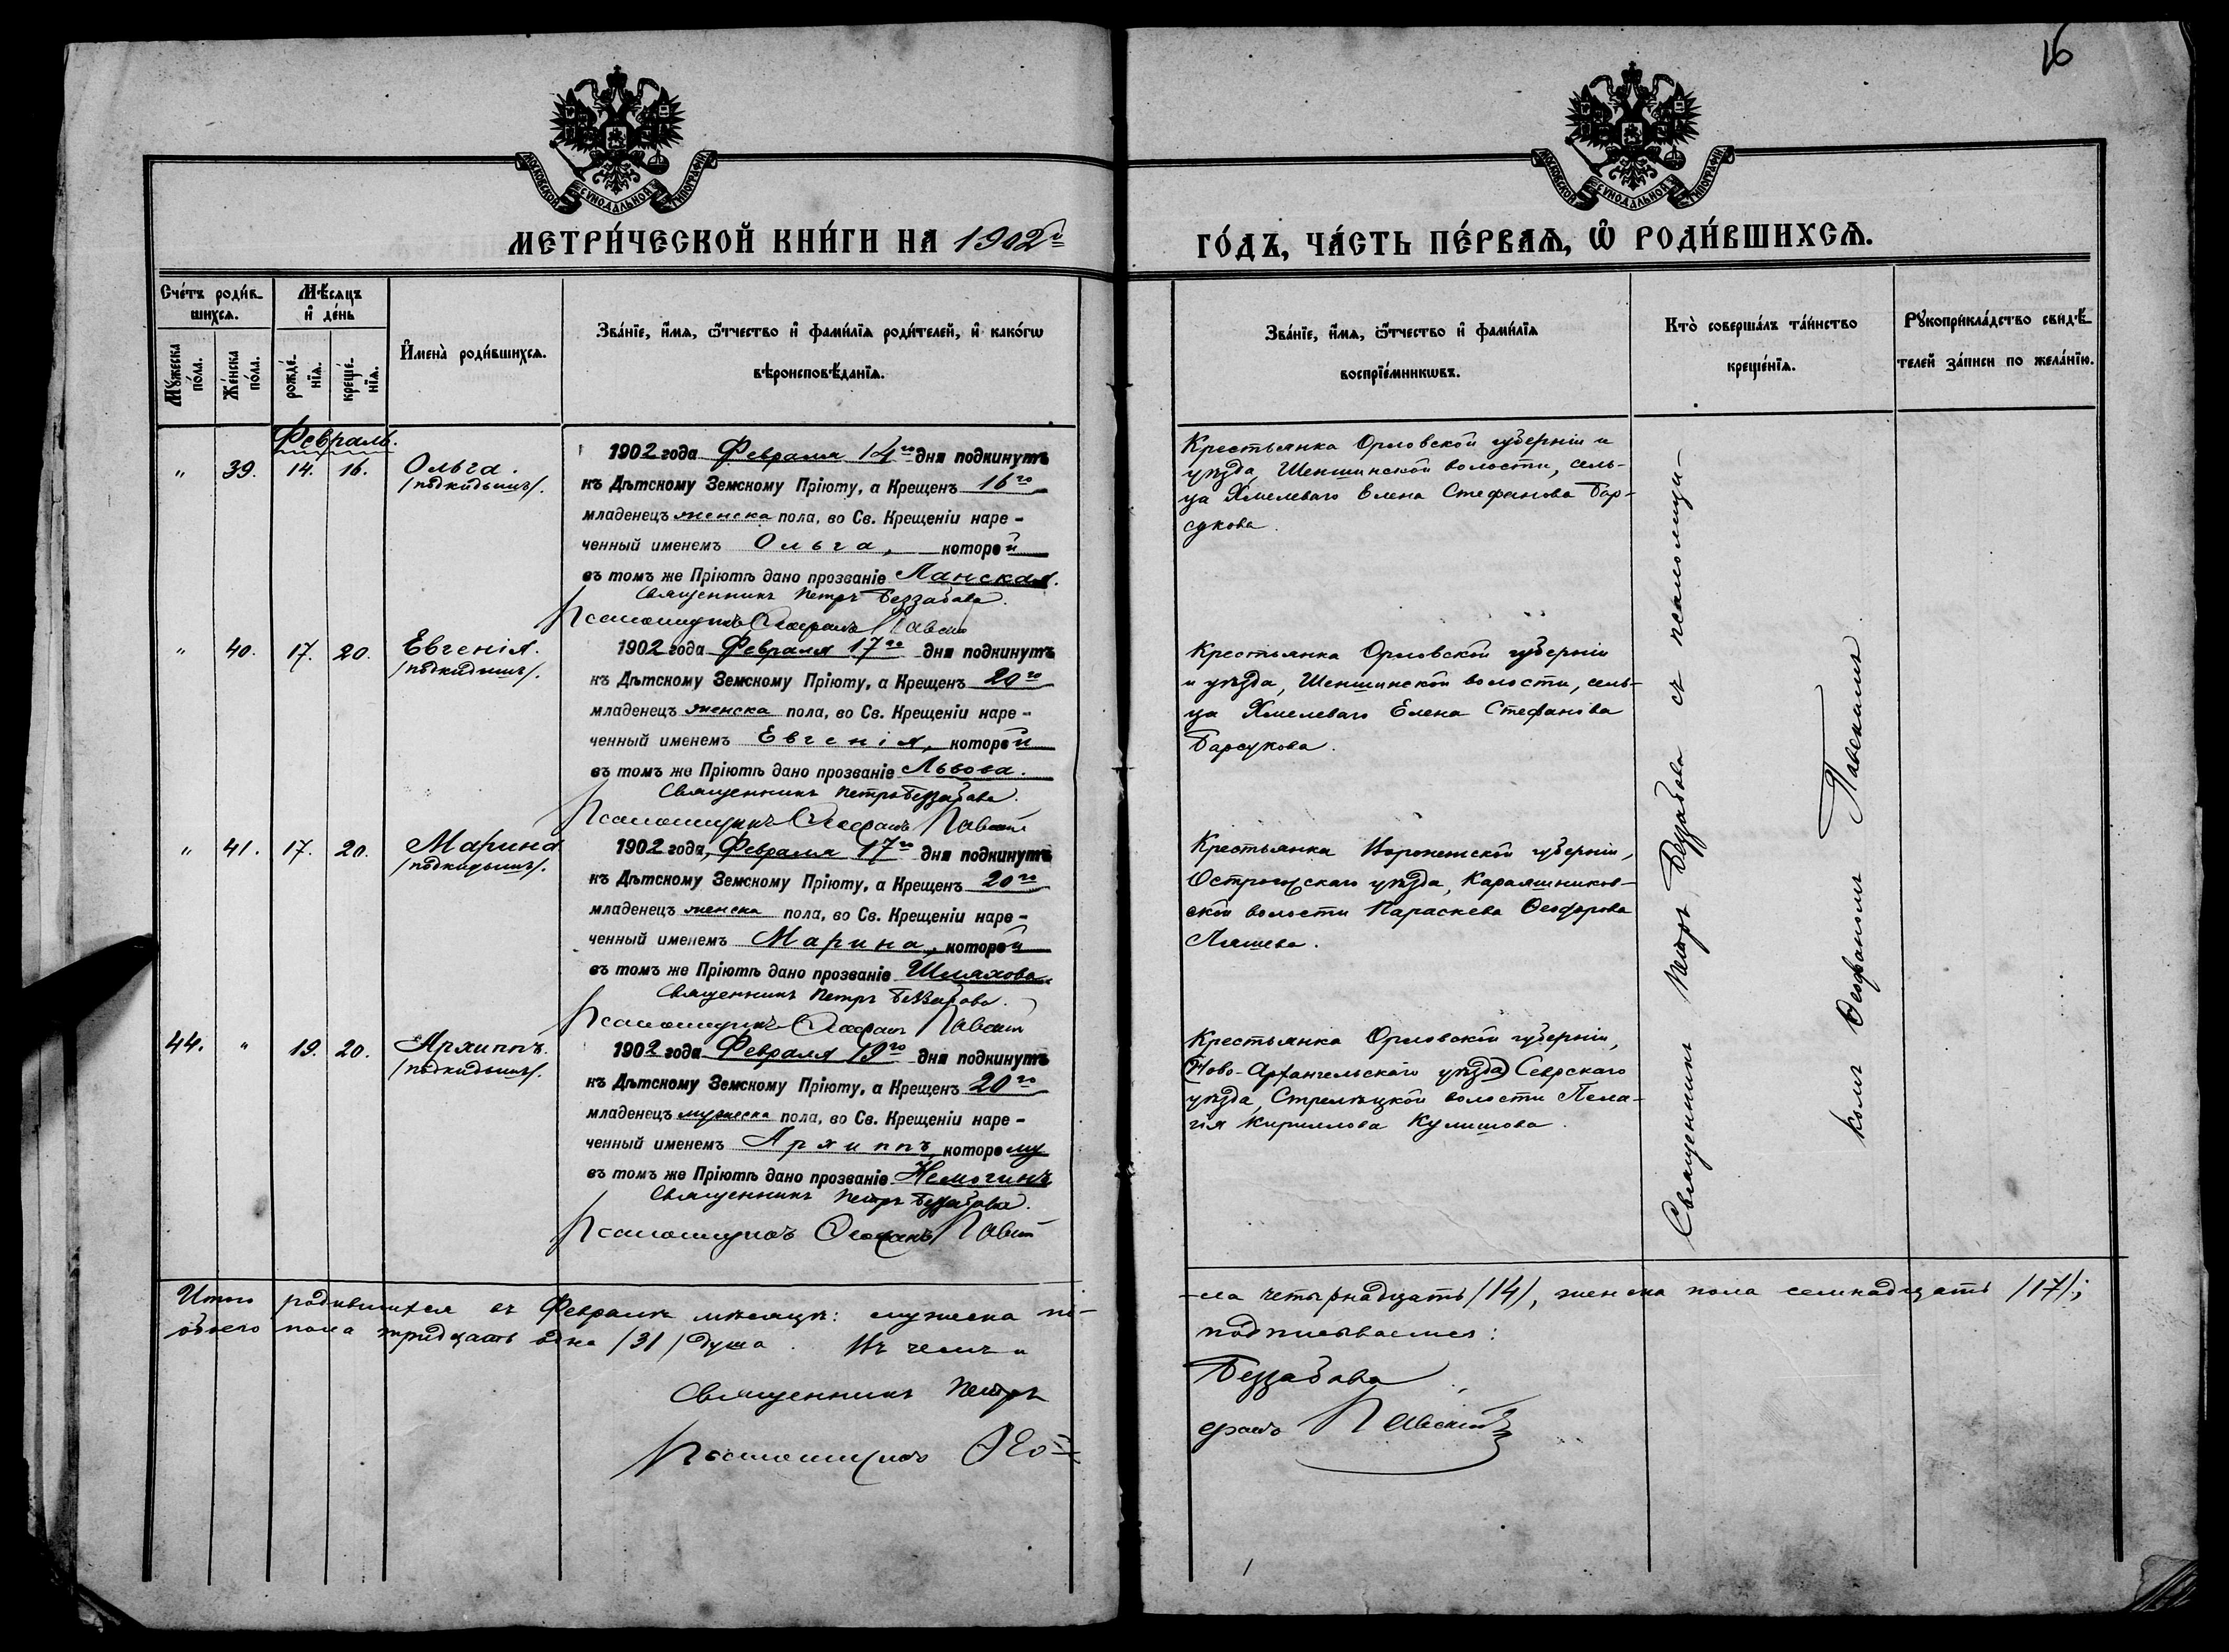 16
МОСКОВСКОЙ СѴНОДАЛЬНОЙ ТИПОГРАФІИ
МОСКОВСКОЙ СѴНОДАЛЬНОЙ ТИПОГРАФІИ
МЕТРИ́ЧЕСКОЙ КНИ́ГИ НА 1902й
ГО́ДЪ, ЧА́СТЬ ПЕ́РВАѦ, Ѡ РОДИ́ВШИХСѦ.
Сче́тъ роди́в-
шихсѧ.
Мѣ́сѧцъ
и де́нь
Мꙋ́жеска по́ла.
Же́нска по́ла.
рожде́-нїѧ.
креще́-нїѧ.
Имена̀ роди́вшихсѧ.
Зва́нїе, и́мѧ, ѻ́тчество и фами́лїѧ роди́телей, и како́гѡ
вѣроисповѣ́данїѧ.
Зва́нїе, и́мѧ, ѻ́тчество и фами́лїѧ
воспрїе́мникѡвъ.
Кто̀ соверша́лъ та́инство
креще́нїѧ.
Рꙋкоприкла́дство свидѣ́-
телей за́писи по жела́нїю.
Февраль.
" 39. 14. 16. Ольга.
/подкидышъ/.
1902 года Февраля 14го дня подкинутъ
къ Дѣтскому Земскому Пріюту, а Крещенъ 16го
младенецъ женска пола, во Св. Крещеніи наре-
ченный именемъ Ольга, которой
въ томъ же Пріютѣ дано прозваніе Ланская.
Священникъ Петръ Беззабава.
Псаломщикъ Ѳеофанъ Павскій
Крестьянка Орловской губерніи и
уѣзда, Шеншинской волости, сель-
ца Хмелеваго Елена Стефанова Бар-
сукова.
" 40. 17. 20. Евгенія.
/подкидышъ/.
1902 года Февраля 17го дня подкинутъ
къ Дѣтскому Земскому Пріюту, а Крещенъ 20го
младенецъ женска пола, во Св. Крещеніи наре-
ченный именемъ Евгенія, которой
въ томъ же Пріютѣ дано прозваніе Львова.
Священникъ Петръ Беззабава.
Псаломщикъ Ѳеофанъ Павскій
Крестьянка Орловской губерніи
и уѣзда, Шеншинской волости, сель-
ца Хмелеваго Елена Стефанова
Барсукова.
" 41. 17. 20. Марина
/подкидышъ/.
1902 года, Февраля 17го дня подкинутъ
къ Дѣтскому Земскому Пріюту, а Крещенъ 20го
младенецъ женска пола, во Св. Крещеніи наре-
ченный именемъ Марина, которой
въ томъ же Пріютѣ дано прозваніе Шляхова.
Священникъ Петръ Беззабава.
Псаломщикъ Ѳеофанъ Павскій
Крестьянка Воронежской губерніи,
Острогожскаго уѣзда, Караяшников-
ской волости Параскева Ѳеодорова
Ляшева.
44. " 19. 20. Архиппъ.
/подкидышъ/.
1902 года Февраля 19го дня подкинутъ
къ Дѣтскому Земскому Пріюту, а Крещенъ 20го
младенецъ мужеска пола, во Св. Крещеніи наре-
ченный именемъ Архиппъ, которому
въ томъ же Пріютѣ дано прозваніе Немогинъ
Священникъ Петръ Беззабава.
Псаломщикъ Ѳеофанъ Павскій
Крестьянка Орловской губерніи,
(Ново-Архангельскаго уѣзда) Севрскаго
уѣзда, Стрелѣцкой волости Пела-
гія Кириллова Кулишова.
Священникъ Петръ Беззабава съ псаломщи-
комъ Ѳеофаномъ Павскимъ.
Итого родившихся въ Февралѣ мѣсяцѣ: мужеска по-
-ла четырнадцать /14/, женска пола семнадцать /17/;
обоего пола тридцать одна /31/ душа. Въ чемъ и
подписываемся:
Священникъ Петръ
Беззабава
Псаломщикъ Ѳео-
фанъ Павскій